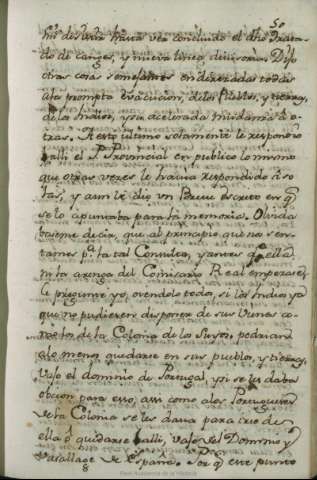 50
una vez concluido el dho Trata-
do de canges, y nueva linea divisoria. Dijo
otras cosas semejantes enderezadas todas
ala prompta evacuacion delos Pueblos, y tierras,
delos Indios, y su acelerada mudanza a o-
tras. A esto ultimo solamente le respondio
alli el P. Provincial en publico lo mismo
que otras veces le havia respondido a so-
las, y aun le dio un Breve escrito en q̃
se lo apuntaba para la memoria. Olvida
baseme decir, que al principio, que nos sen-
tamos pª la tal Consulta, y antes q̃ ella,
ni la arenga del Comisario Real empezase,
le pregunte yo, oyendolo todos, si los Indios ya
que no pudiesen disponer de sus vienes co-
mo los de la Colonia de los Suyos, podrian
alo menos quedarse en sus pueblos, y tierras,
vajo el dominio de Portugal, y si se les daba
obcion para esso, assi como alos Portugueses
dela Colonia se les dava para irse de
ella ò quedarse alli, vajo del Dominio y
Vasallage de España. Porq̃ este punto
8